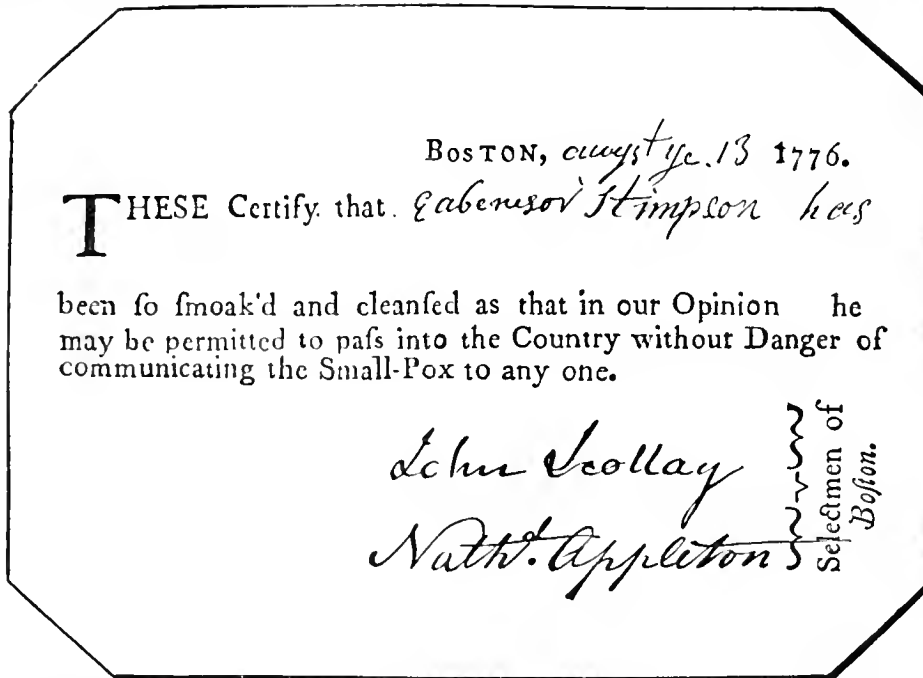 BOSTON, augst ye. 13 1776.
THESE Certify that Eabenesor Stimpson has
been ſo ſmoak'd and cleanſed as that in our Opinion he
may be permitted to paſs into the Country without Danger of
communicating the Small-Pox to any one.
John Scollay
Nathl. Appleton
Selectmen of
Boſton.